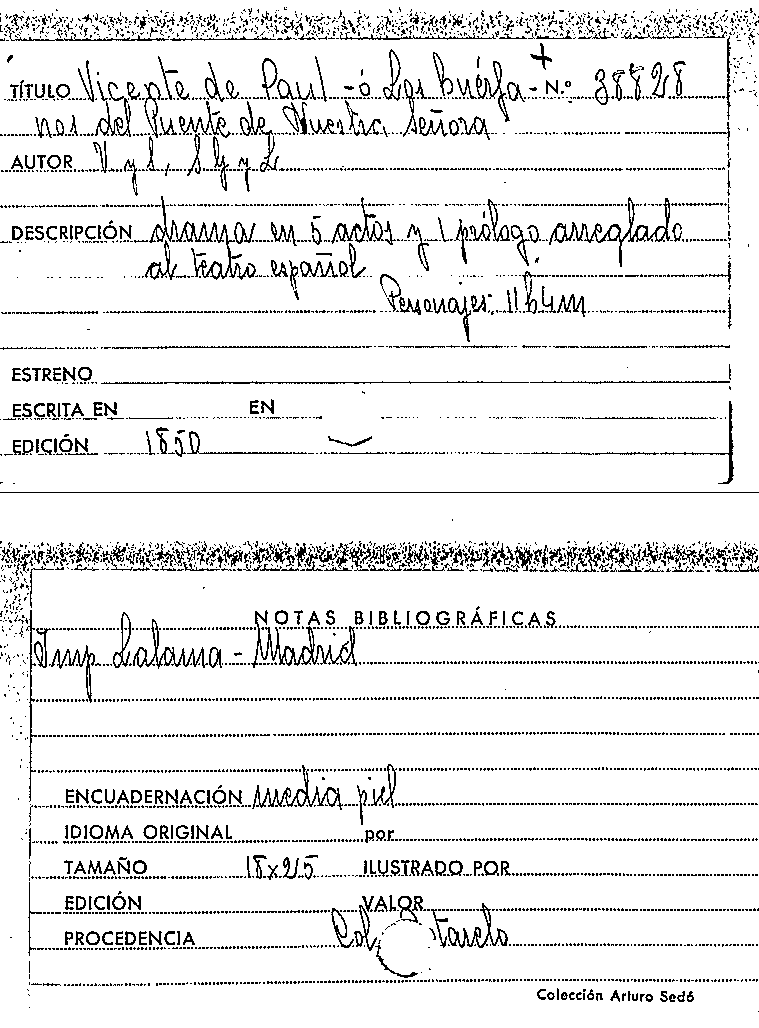 TÍTULO Vicente de Paul - ó Los huérfa- N.º 38828
nos del Puente de Nuestra Señora
AUTOR V y L, S G y L
DESCRIPCIÓN drama en 5 actos y 1 prólogo, arreglado
al teatro español
Personajes: 11h4m
ESTRENO
ESCRITA EN EN
EDICIÓN 1850
NOTAS BIBLIOGRÁFICAS
Imp Lalama - Madrid
ENCUADERNACIÓN media piel
IDIOMA ORIGINAL por
TAMAÑO 18x25 ILUSTRADO POR
EDICIÓN VALOR
PROCEDENCIA Col
Colección Arturo Sedó